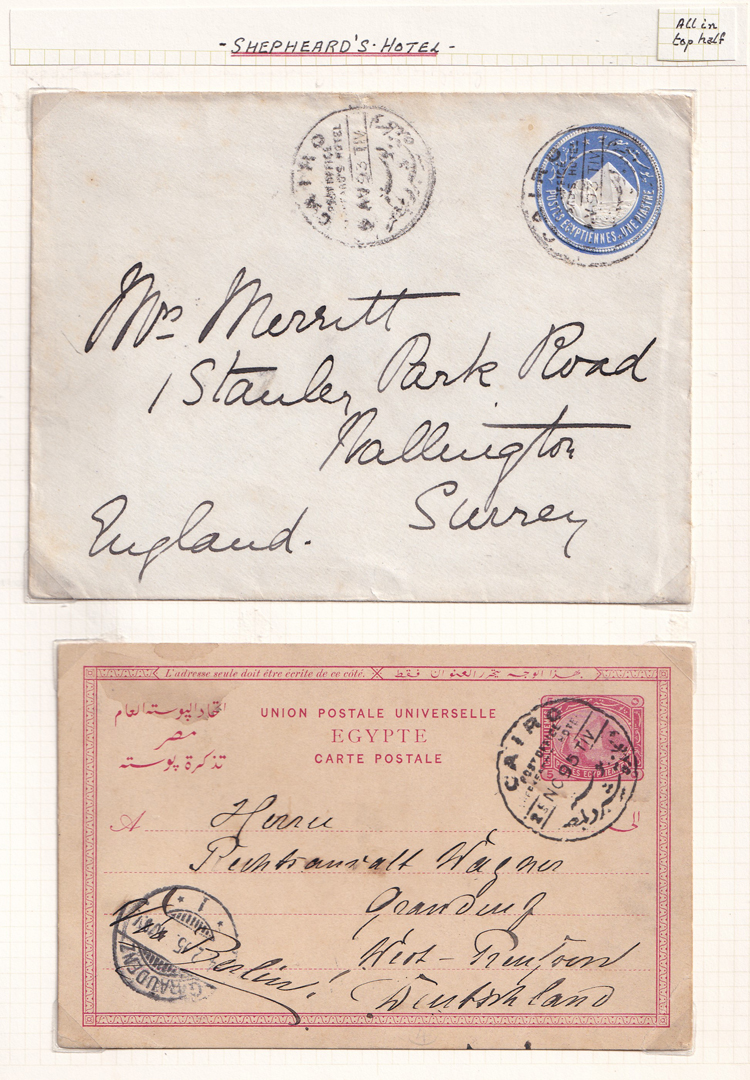 - SHEPHEARD'S · HOTEL -
All in
top half
CAIRO
POST OFFICE
4 AV 93 TIV
CAIRO
POSTES EGYPTIENNES. UNE PIASTRE
Mrs Merritt
1 Stanley Park Road
Wallington
Surrey
England.
L'adresse seule doit être écrite de ce côté.
بهذا الوجه يحرر العنوان فقط
اتحاد البوسته العام
مصر
تذكرة بوسته
UNION POSTALE UNIVERSELLE
EGYPTE
CARTE POSTALE
CAIRO
POST OFFICE
HOTEL
NO 95 TIV
A
الى
Herrn
Rechtsanwalt Wagner
Graudenz
West-Preussen
Deutschland
Berlin!
GRAUDENZ
* 1 *